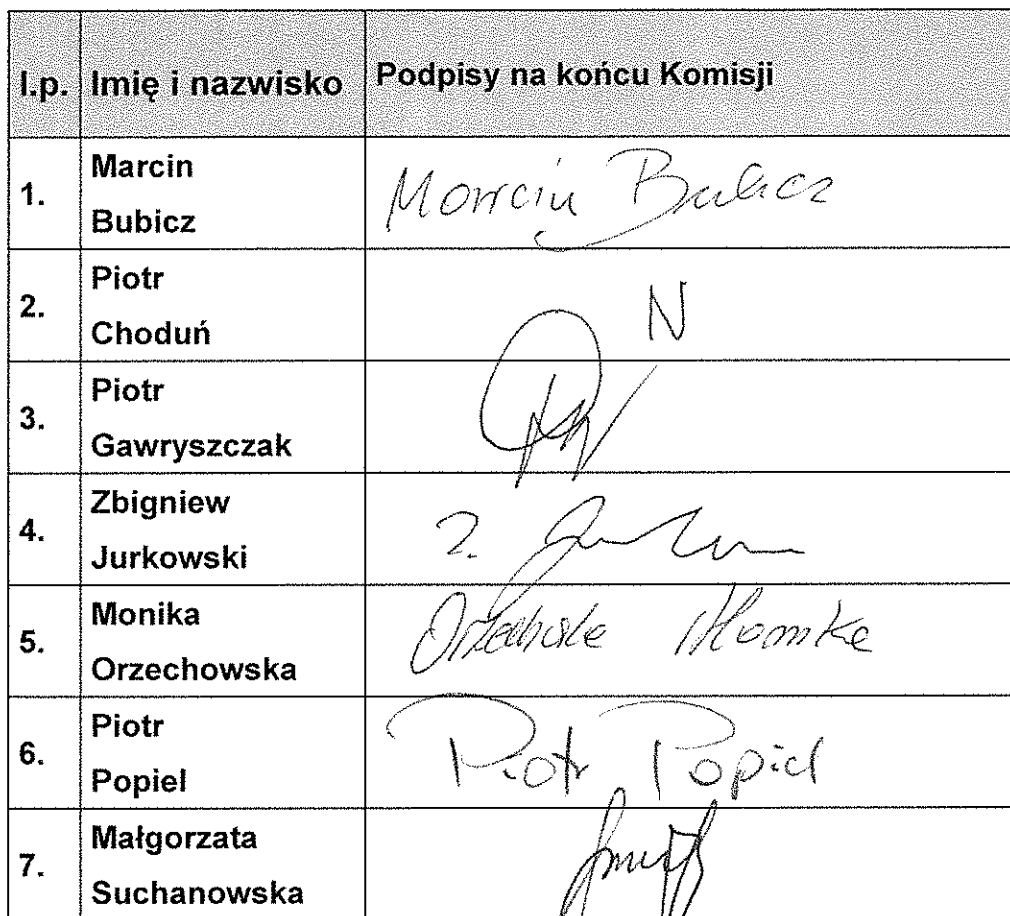 l.p. Imię i nazwisko Podpisy na końcu Komisji
1. Marcin Bubicz Marcin Bubicz
2. Piotr Choduń N
3. Piotr Gawryszczak
4. Zbigniew Jurkowski
5. Monika Orzechowska
6. Piotr Popiel Piotr Popiel
7. Małgorzata Suchanowska